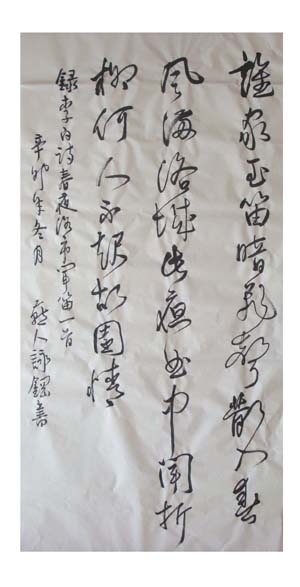 誰家玉笛暗飛聲散入春
風滿洛城此夜曲中聞折
柳何人不起故園情
錄李白詩春夜洛聞笛一首
辛卯年冬月 人詠書